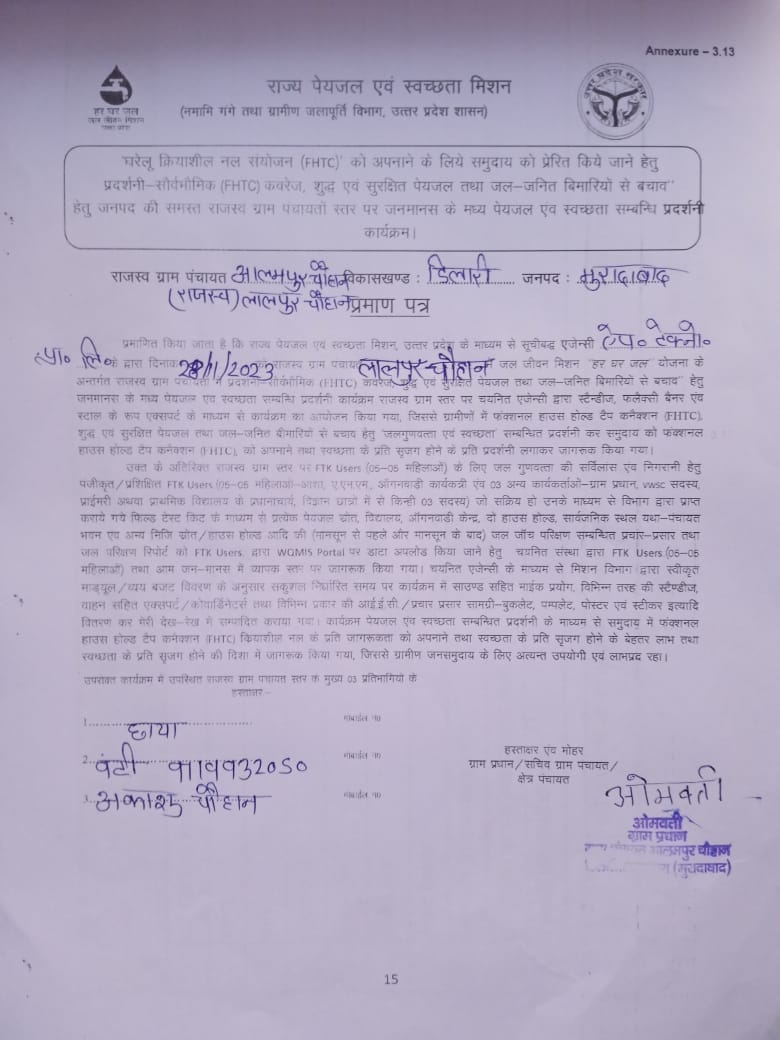 Annexure – 3.13
हर घर जल
जल जीवन मिशन
राज्य पेयजल एवं स्वच्छता मिशन
(नमामि गंगे तथा ग्रामीण जलापूर्ति विभाग, उत्तर प्रदेश शासन)
उत्तर प्रदेश सरकार
'घरेलू क्रियाशील नल संयोजन (FHTC)' को अपनाने के लिये समुदाय को प्रेरित किये जाने हेतु
प्रदर्शनी–सौर्वभौमिक (FHTC) कवरेज, शुद्ध एवं सुरक्षित पेयजल तथा जल–जनित बिमारियों से बचाव"
हेतु जनपद की समस्त राजस्व ग्राम पंचायतों स्तर पर जनमानस के मध्य पेयजल एंव स्वच्छता सम्बन्धि प्रदर्शनी
कार्यक्रम।
राजस्व ग्राम पंचायत आलमपुर चौहान विकासखण्ड : डिलारी जनपद : मुरादाबाद
(राजस्व) लालपुर चौहान प्रमाण पत्र
प्रमाणित किया जाता है कि राज्य पेयजल एवं स्वच्छता मिशन, उत्तर प्रदेश के माध्यम से सूचीबद्ध एजेन्सी ऐप० टेक्नो०
प्रा० लि० के द्वारा दिनांक /11/2023 राजस्व ग्राम पंचायत लालपुर चौहान जल जीवन मिशन "हर घर जल" योजना के
अन्तर्गत राजस्व ग्राम पंचायतों में प्रदर्शनी–सौर्वभौमिक (FHTC) कवरेज, शुद्ध एवं सुरक्षित पेयजल तथा जल–जनित बिमारियों से बचाव" हेतु
जनमानस के मध्य पेयजल एंव स्वच्छता सम्बन्धि प्रदर्शनी कार्यक्रम राजस्व ग्राम स्तर पर चयनित एजेन्सी द्वारा स्टैन्डीज, फलैक्सी बैनर एंव
स्टाल के रूप एक्सपर्ट के माध्यम से कार्यक्रम का आयोजन किया गया, जिससे ग्रामीणों में फंक्शनल हाउस होल्ड टैप कनैक्शन (FHTC),
शुद्ध एवं सुरक्षित पेयजल तथा जल–जनित बीमारियों से बचाव हेतु 'जलगुणवत्ता एवं स्वच्छता' सम्बन्धित प्रदर्शनी कर समुदाय को फंक्शनल
हाउस होल्ड टैप कनेक्शन (FHTC), को अपनाने तथा स्वच्छता के प्रति सृजग होने के प्रति प्रदर्शनी लगाकर जागरूक किया गया।
उक्त के अतिरिक्त राजस्व ग्राम स्तर पर FTK Users (05–05 महिलाओं) के लिए जल गुणवत्ता की सर्विलांस एंव निगरानी हेतु
पंजीकृत/प्रशिक्षित FTK Users (05–05 महिलाओं–आशा, ए.एन.एम., आँगनवाड़ी कार्यकत्री एंव 03 अन्य कार्यकर्ताओं–ग्राम प्रधान, vwsc सदस्य,
प्राईमरी अथवा प्राथमिक विद्यालय के प्रधानाचार्य, विज्ञान छात्रों में से किन्ही 03 सदस्य) जो सक्रिय हो उनके माध्यम से विभाग द्वारा प्राप्त
कराये गये फिल्ड टेस्ट किट के माध्यम से प्रत्येक पेयजल स्रोत, विद्यालय, आँगनवाडी केन्द्र, दो हाउस होल्ड, सार्वजनिक स्थल यथा–पंचायत
भवन एंव अन्य निजि स्रोत/हाउस होल्ड आदि की (मानसून से पहले और मानसून के बाद) जल जाँच परिक्षण सम्बन्धित प्रचार–प्रसार तथा
जल परिक्षण रिपोर्ट को FTK Users, द्वारा WQMIS Portal पर डाटा अपलोड किया जाने हेतु चयनित संस्था द्वारा FTK Users (05–05
महिलाओं) तथा आम जन–मानस में व्यापक स्तर पर जागरूक किया गया। चयनित एजेन्सी के माध्यम से मिशन विभाग द्वारा स्वीकृत
माड्यूल/व्यय बजट विवरण के अनुसार सकुशल निर्धारित समय पर कार्यक्रम में साउण्ड सहित माईक प्रयोग, विभिन्न तरह की स्टैण्डीज,
वाहन सहित एक्सपर्ट/कोवार्डिनेटर्स तथा विभिन्न प्रकार की आई.ई.सी./प्रचार प्रसार सामग्री–बुकलेट, पम्पलेट, पोस्टर एवं स्टीकर इत्यादि
वितरण कर मेरी देख–रेख में सम्पादित कराया गया। कार्यक्रम पेयजल एंव स्वच्छता सम्बन्धित प्रदर्शनी के माध्यम से समुदाय में फंक्शनल
हाउस होल्ड टैप कनेक्शन (FHTC) कियाशील नल के प्रति जागरूकता को अपनाने तथा स्वच्छता के प्रति सृजग होने के बेहतर लाभ तथा
स्वच्छता के प्रति सृजग होने की दिशा में जागरूक किया गया, जिससे ग्रामीण जनसमुदाय के लिए अत्यन्त उपयोगी एवं लाभप्रद रहा।
उपरोक्त कार्यक्रम में उपस्थित राजस्व ग्राम पंचायत स्तर के मुख्य 03 प्रतिभागियों के
हस्ताक्षर:–
1. छाया मोबाईल न0
2. वंटी मोबाईल न0
3. अकाश चौहान मोबाईल न0
हस्ताक्षर एंव मोहर
ग्राम प्रधान/सचिव ग्राम पंचायत/
क्षेत्र पंचायत
ओमवती
ओमवती
ग्राम प्रधान
आलमपुर चौहान
(मुरादाबाद)
15